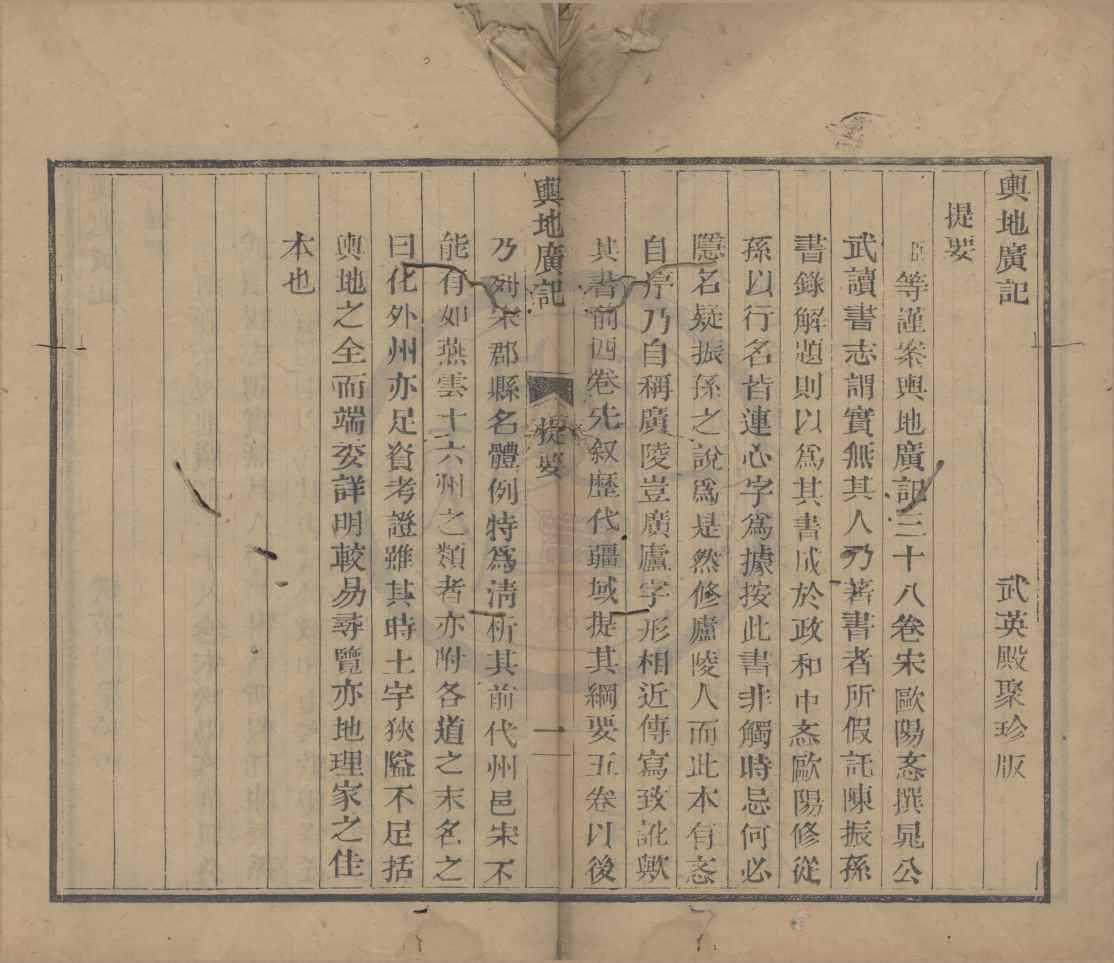 輿地廣記 武英殿聚珍版
提要
臣等謹案輿地廣記三十八卷宋歐陽忞撰晁公
武讀書志謂實無其人乃著書者所假託陳振孫
書錄解題則以爲其書成於政和中忞歐陽修從
孫以行名皆連心字爲據按此書非觸時忌何必
隱名疑振孫之說爲是然修廬陵人而此本有忞
自序乃自稱廣陵豈廣廬字形相近傳寫致訛歟
其書前四卷先敘歷代疆域提其綱要五卷以後
輿地廣記 提要 一
乃列宋郡縣名體例特爲淸析其前代州邑宋不
能有如燕雲十六州之類者亦附各道之末名之
曰化外州亦足資考證雖其時土宇狹隘不足括
輿地之全而端委詳明較易尋覽亦地理家之佳
本也